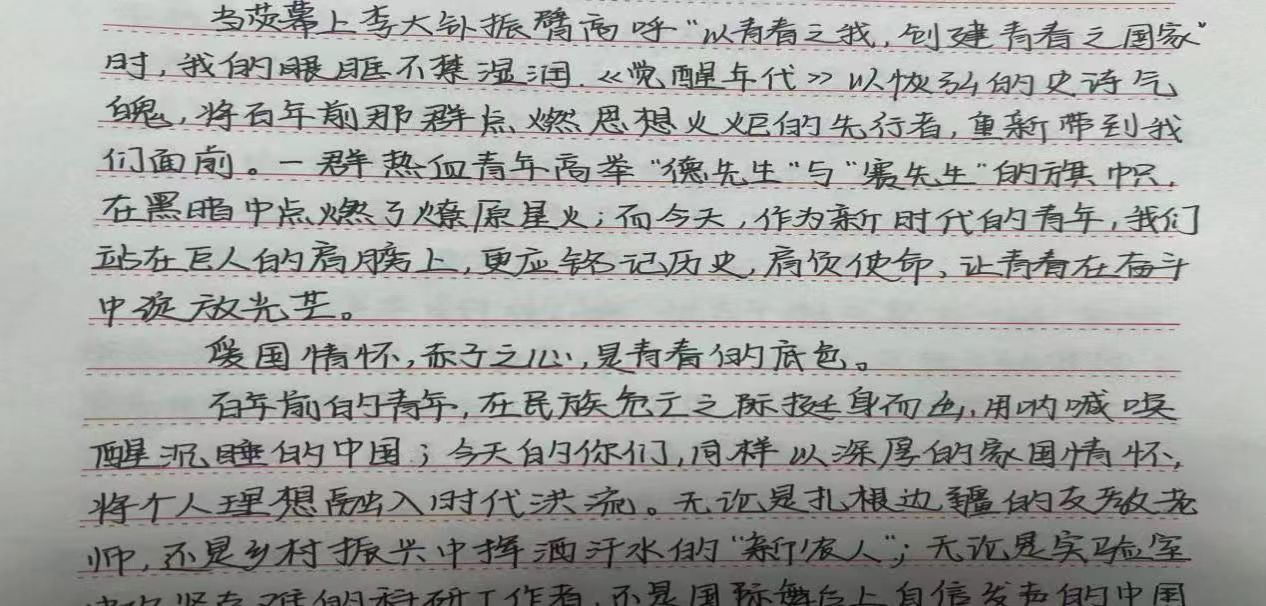 当荧幕上李大钊振臂高呼“以青春之我,创建青春之国家”
时,我的眼眶不禁湿润.《觉醒年代》以恢弘的史诗气
魄,将百年前那群点燃思想火炬的先行者,重新带到我
们面前。一群热血青年高举“德先生”与“赛先生”的旗帜,
在黑暗中点燃了燎原星火;而今天,作为新时代的青年,我们
站在巨人的肩膀上,更应铭记历史,肩负使命,让青春在奋斗
中绽放光芒。
爱国情怀,赤子之心,是青春的底色。
百年前的青年,在民族危亡之际挺身而出,用呐喊唤
醒沉睡的中国;今天的你们,同样以深厚的家国情怀,
将个人理想融入时代洪流。无论是扎根边疆的支教老
师,还是乡村振兴中挥洒汗水的“新农人”;无论是实验室
中攻坚克难的科研工作者,还是国际舞台上自信发声的中国